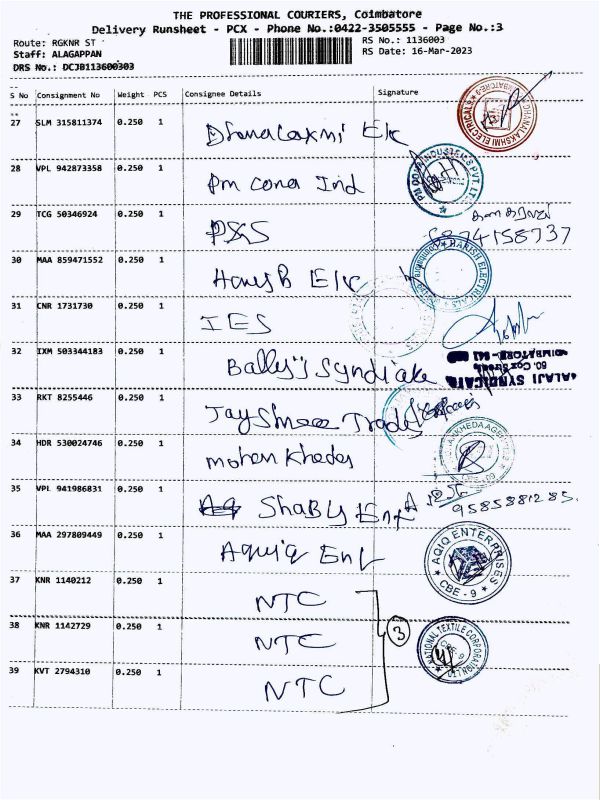 THE PROFESSIONAL COURIERS, Coimbatore
Delivery Runsheet - PCX - Phone No.:0422-3505555 - Page No.:3
Route: RGKNR ST
RS No.: 1136003
Staff: ALAGAPPAN
RS Date: 16-Mar-2023
DRS No.: DCJB113600303
S No Consignment No Weight PCS Consignee Details Signature
27 SLM 315811374 0.250 1 Dhanalaxmi Elc
DHANALAKSHMI ELECTRICALS
28 VPL 942873358 0.250 1 Pm cona Ind
29 TCG 50346924 0.250 1 PSS
30 MAA 859471552 0.250 1
HARISH ELECTRICALS
31 CNR 1731730 0.250 1 IES
32 IXM 503344183 0.250 1 Syndicate
ALAJI SYNDICATE
50, Cox Street,
33 RKT 8255446 0.250 1 Jay Shree Trade
34 HDR 530024746 0.250 1 mohan Khedas
35 VPL 941986831 0.250 1
9585881285.
36 MAA 297809449 0.250 1 Aquiq Ent
AQIQ ENTERPRISES
CBE - 9
37 KNR 1140212 0.250 1 NTC
38 KNR 1142729 0.250 1 NTC
3
NATIONAL TEXTILE CORPORATION LTD
CBE-9
39 KVT 2794310 0.250 1 NTC